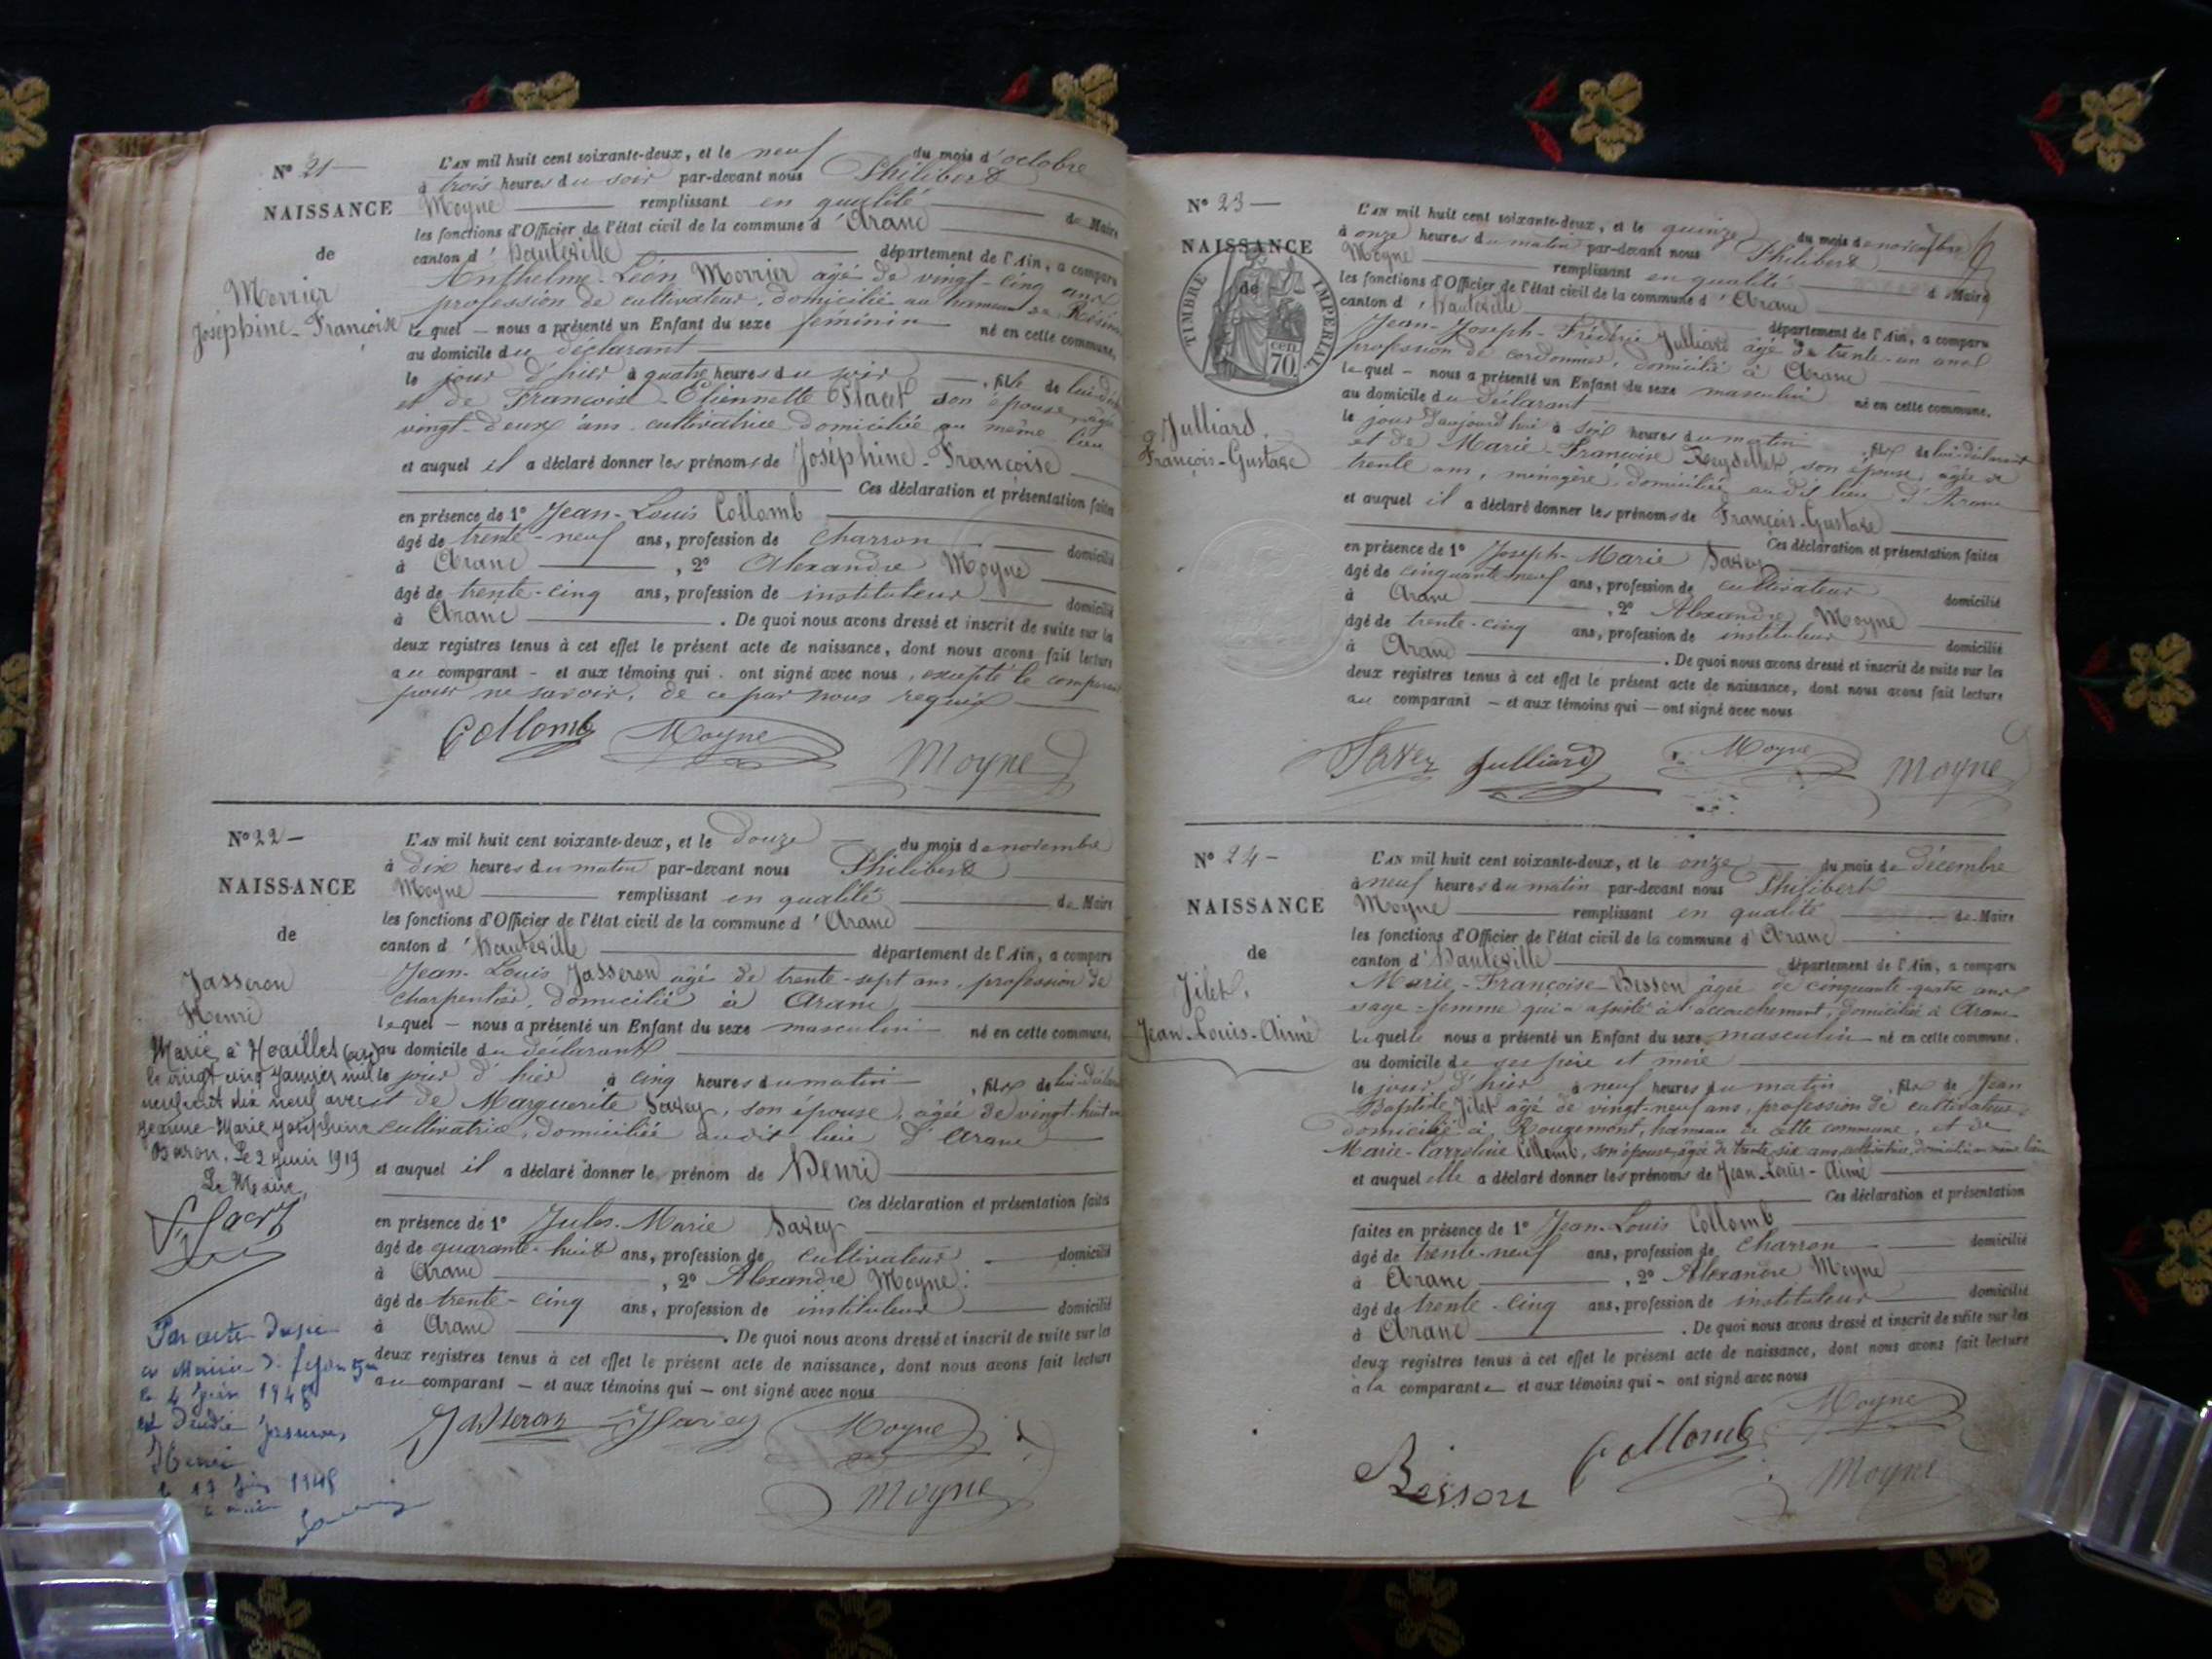 N° 21
NAISSANCE
de
Morrier
Joséphine-Françoise
L'AN mil huit cent soixante-deux, et le neuf du mois d'octobre
à trois heures du soir par-devant nous Philibert
Moyne remplissant en qualité de Maire
les fonctions d'Officier de l'état civil de la commune d'Aranc
canton d'Hauteville département de l'Ain, a comparu
Anthelme-Léon Morrier âgé de vingt-cinq ans
profession de cultivateur, domicilié au hameau de
lequel nous a présenté un Enfant du sexe féminin né en cette commune,
au domicile du déclarant
le jour d'hier à quatre heures du soir , fille de lui déclarant
et de Françoise-Etiennette son épouse, âgée
vingt-deux ans, cultivatrice domiciliée au même lieu
et auquel il a déclaré donner les prénoms de Joséphine-Françoise
Ces déclaration et présentation faites
en présence de 1° Jean-Louis Collomb
âgé de trente-neuf ans, profession de charron domicilié
à Aranc , 2° Alexandre Moyne
âgé de trente-cinq ans, profession de instituteur domicilié
à Aranc . De quoi nous avons dressé et inscrit de suite sur les
deux registres tenus à cet effet le présent acte de naissance, dont nous avons fait lecture
au comparant - et aux témoins qui ont signé avec nous, excepté le comparant
pour ne savoir, de ce par nous requis
Collomb Moyne Moyne
N° 22
NAISSANCE
de
Jasseron
Henri
L'AN mil huit cent soixante-deux, et le douze du mois de novembre
à dix heures du matin par-devant nous Philibert
Moyne remplissant en qualité de Maire
les fonctions d'Officier de l'état civil de la commune d'Aranc
canton d'Hauteville département de l'Ain, a comparu
Jean-Louis Jasseron âgé de trente-sept ans, profession de
charpentier, domicilié à Aranc
lequel — nous a présenté un Enfant du sexe masculin né en cette commune,
au domicile du déclarant
le jour d'hier à cinq heures du matin , fils de lui déclarant
et de Marguerite Savey, son épouse, âgée de vingt-huit ans
cultivatrice, domiciliée audit lieu d'Aranc
et auquel il a déclaré donner le prénom de Henri
Ces déclaration et présentation faites
en présence de 1° Jules-Marie Savey
âgé de quarante-huit ans, profession de cultivateur domicilié
à Aranc , 2° Alexandre Moyne
âgé de trente-cinq ans, profession de instituteur domicilié
à Aranc . De quoi nous avons dressé et inscrit de suite sur les
deux registres tenus à cet effet le présent acte de naissance, dont nous avons fait lecture
au comparant — et aux témoins qui — ont signé avec nous
Jasseron Savey Moyne
Moyne
Marié à
le vingt cinq janvier mil
neuf cent dix neuf avec
Jeanne-Marie Joséphine
Baron. Le 2 1919
Le Maire,
1948
Henri
1948
N° 23
NAISSANCE
de
TIMBRE IMPERIAL
70 cen
Julliard
François-Gustave
L'AN mil huit cent soixante-deux, et le quinze du mois de novembre
à onze heures du matin par-devant nous Philibert
Moyne remplissant en qualité de Maire
les fonctions d'Officier de l'état civil de la commune d'Aranc
canton d'Hauteville département de l'Ain, a comparu
Jean-Joseph-Frédéric Julliard âgé de trente-un ans
profession de cordonnier, domicilié à Aranc
lequel — nous a présenté un Enfant du sexe masculin né en cette commune,
au domicile du déclarant
le jour d'aujourd'hui à six heures du matin fils de lui déclarant
et de Marie-Françoise Reydellet, son épouse, âgée de
trente ans, ménagère, domiciliée audit lieu d'Aranc
et auquel il a déclaré donner les prénoms de François-Gustave
Ces déclaration et présentation faites
en présence de 1° Joseph-Marie Savey
âgé de cinquante-neuf ans, profession de cultivateur domicilié
à Aranc , 2° Alexandre Moyne
âgé de trente-cinq ans, profession de instituteur domicilié
à Aranc . De quoi nous avons dressé et inscrit de suite sur les
deux registres tenus à cet effet le présent acte de naissance, dont nous avons fait lecture
au comparant — et aux témoins qui — ont signé avec nous
Savey Julliard Moyne Moyne
N° 24
NAISSANCE
de
Jilet,
Jean-Louis-Aimé
L'AN mil huit cent soixante-deux, et le onze du mois de décembre
à neuf heures du matin par-devant nous Philibert
Moyne remplissant en qualité de Maire
les fonctions d'Officier de l'état civil de la commune d'Aranc
canton d'Hauteville département de l'Ain, a comparu
Marie-Françoise Besson âgée de cinquante-quatre ans
sage-femme qui a assisté à l'accouchement, domiciliée à Aranc
laquelle nous a présenté un Enfant du sexe masculin né en cette commune,
au domicile de ses père et mère
le jour d'hier à neuf heures du matin , fils de Jean
Baptiste Jilet âgé de vingt-neuf ans, profession de cultivateur
domicilié à Rougemont, hameau de cette commune, et de
Marie-Carroline Collomb, son épouse, âgée de trente-six ans, cultivatrice, domiciliée au même lieu
et auquel elle a déclaré donner les prénoms de Jean-Louis-Aimé
Ces déclaration et présentation
faites en présence de 1° Jean-Louis Collomb
âgé de trente-neuf ans, profession de charron domicilié
à Aranc , 2° Alexandre Moyne
âgé de trente-cinq ans, profession de instituteur domicilié
à Aranc . De quoi nous avons dressé et inscrit de suite sur les
deux registres tenus à cet effet le présent acte de naissance, dont nous avons fait lecture
à la comparante et aux témoins qui - ont signé avec nous
Besson Collomb Moyne
Moyne